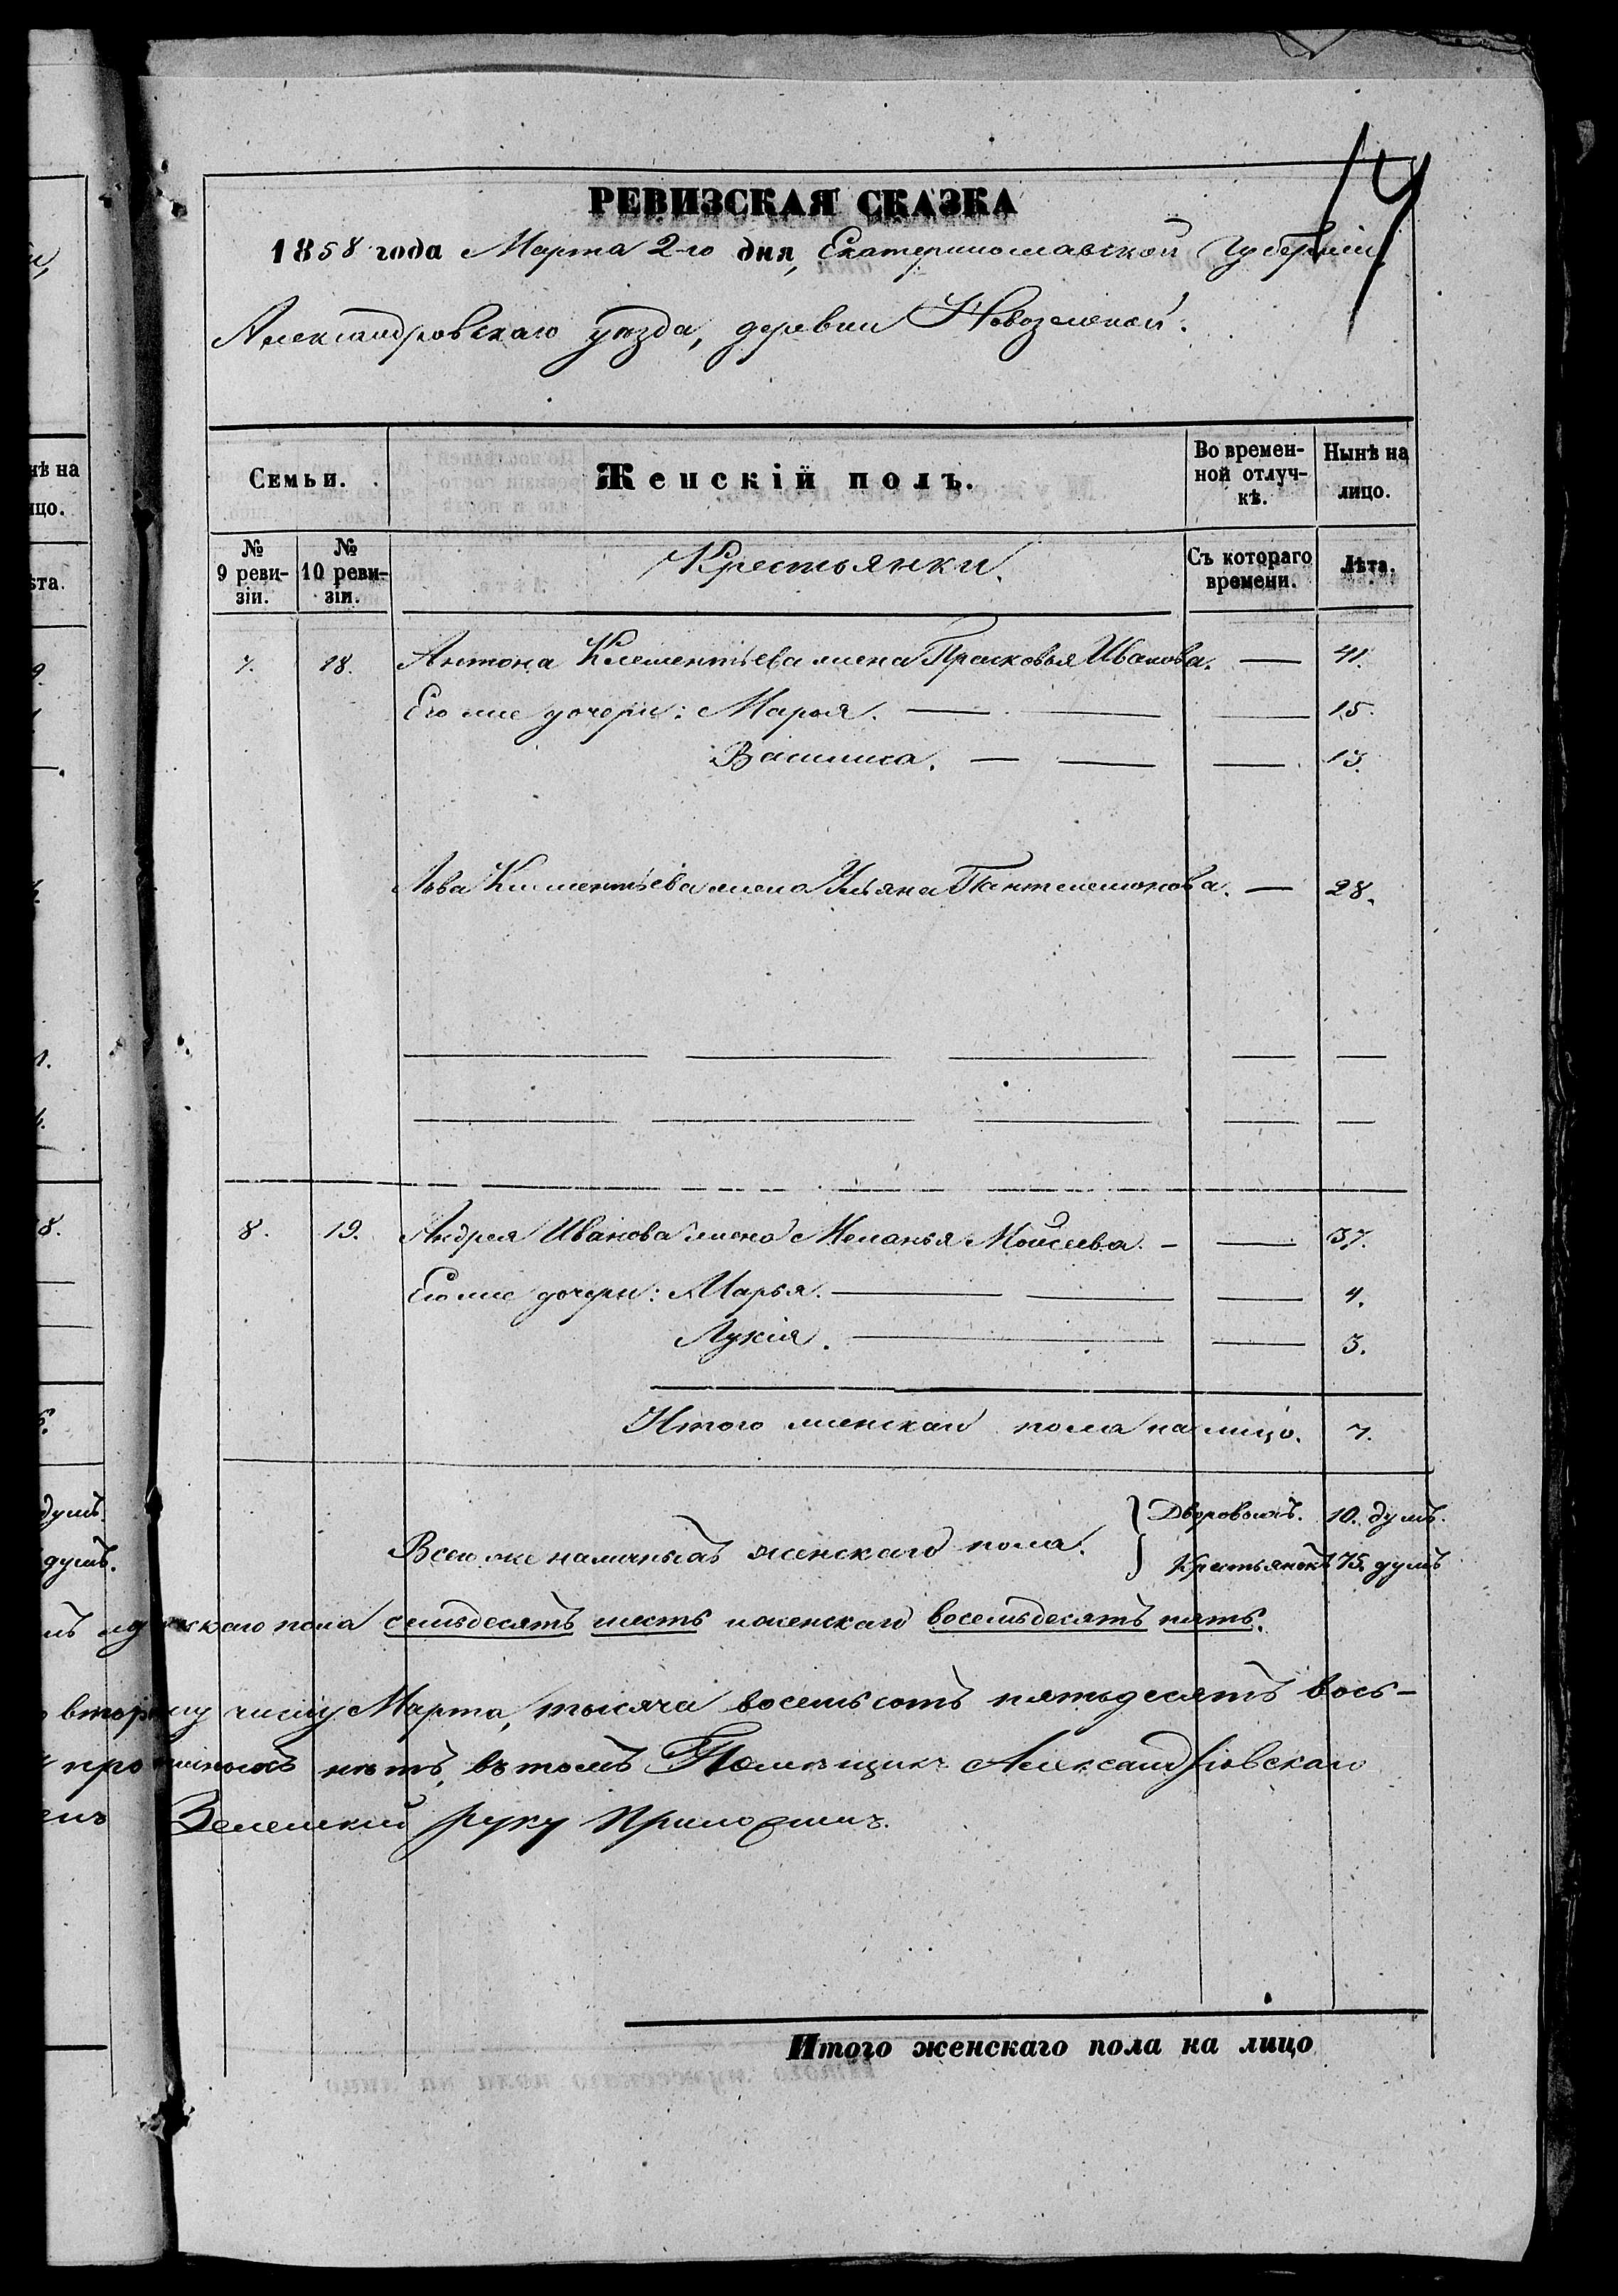 РЕВИЗСКАЯ СКАЗКА
1858 года Марта 2-го дня, Екатеринославской Губерніи
Александровскаго уѣзда, деревни Новозеленой.
Семьи.
Женскій полъ.
Во времен-
ной отлуч-
кѣ.
Нынѣ на
лицо.
№
9 реви-
зіи.
№
10 реви-
зіи.
Крестьянки.
Съ котораго
времени.
Лѣта.
7. 18. Антона Клементьева жена Прасковья Иванова. — 41.
Его же дочери: Марья. — 15.
Василиса. — 13.
Льва Клементьева жена Ульяна Пантелемонова. — 28.
8. 19. Андрея Иванова жена Меланья Моисеева. — 37.
Его же дочери: Марья. — 4.
Лукія. — 3.
Итого женскаго пола на лицо. 7.
Дворовыхъ. 10. душъ.
Всего же наличныхъ женскаго пола.
Крестьянокъ 75. душъ
пола семьдесятъ шесть и женскаго восемьдесятъ пять.
второму числу Марта, тысяча восемьсотъ пятьдесятъ вось-
нѣтъ, въ томъ Помѣщикъ Александровскаго
Зеленскій руку приложилъ.
Итого женскаго пола на лицо
нѣ на
цо.
ѣта.
8.
душъ.
душъ.